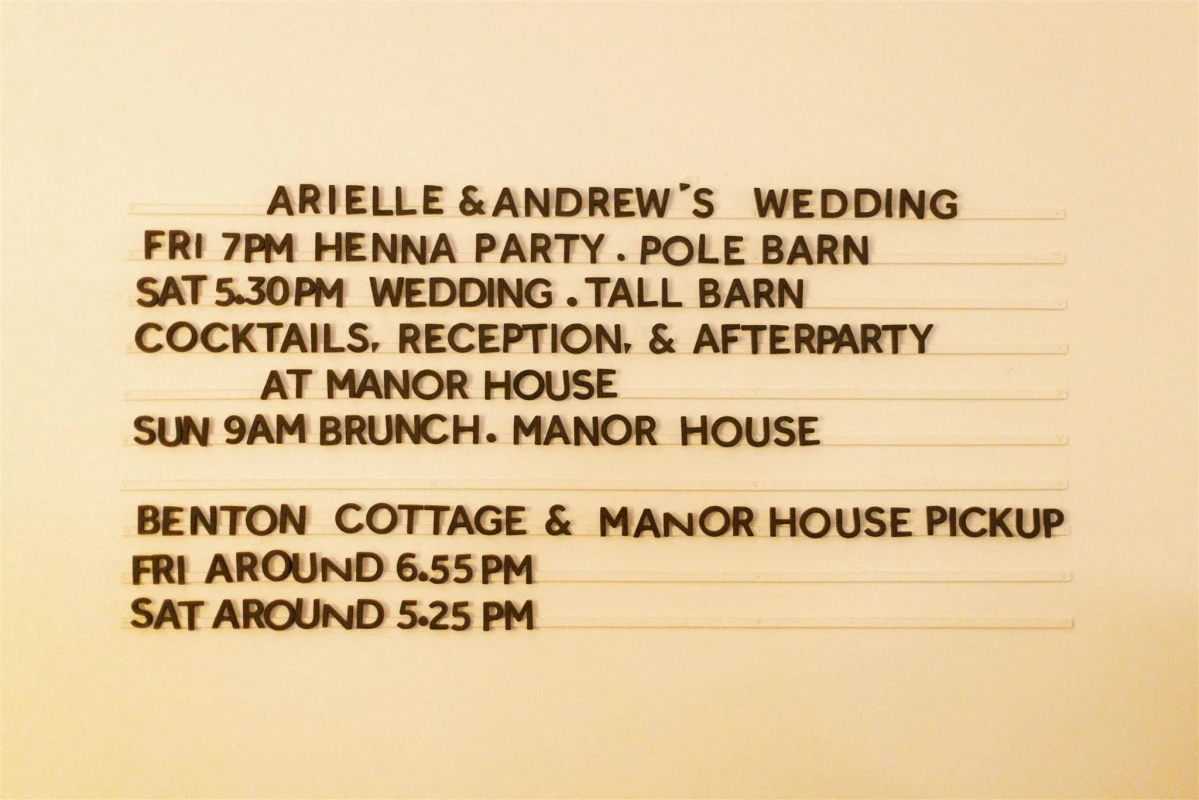 ARIELLE & ANDREW'S WEDDING
FRI 7PM HENNA PARTY . POLE BARN
SAT 5.30PM WEDDING . TALL BARN
COCKTAILS, RECEPTION, & AFTERPARTY
AT MANOR HOUSE
SUN 9AM BRUNCH. MANOR HOUSE
BENTON COTTAGE & MANOR HOUSE PICKUP
FRI AROUND 6.55 PM
SAT AROUND 5.25 PM